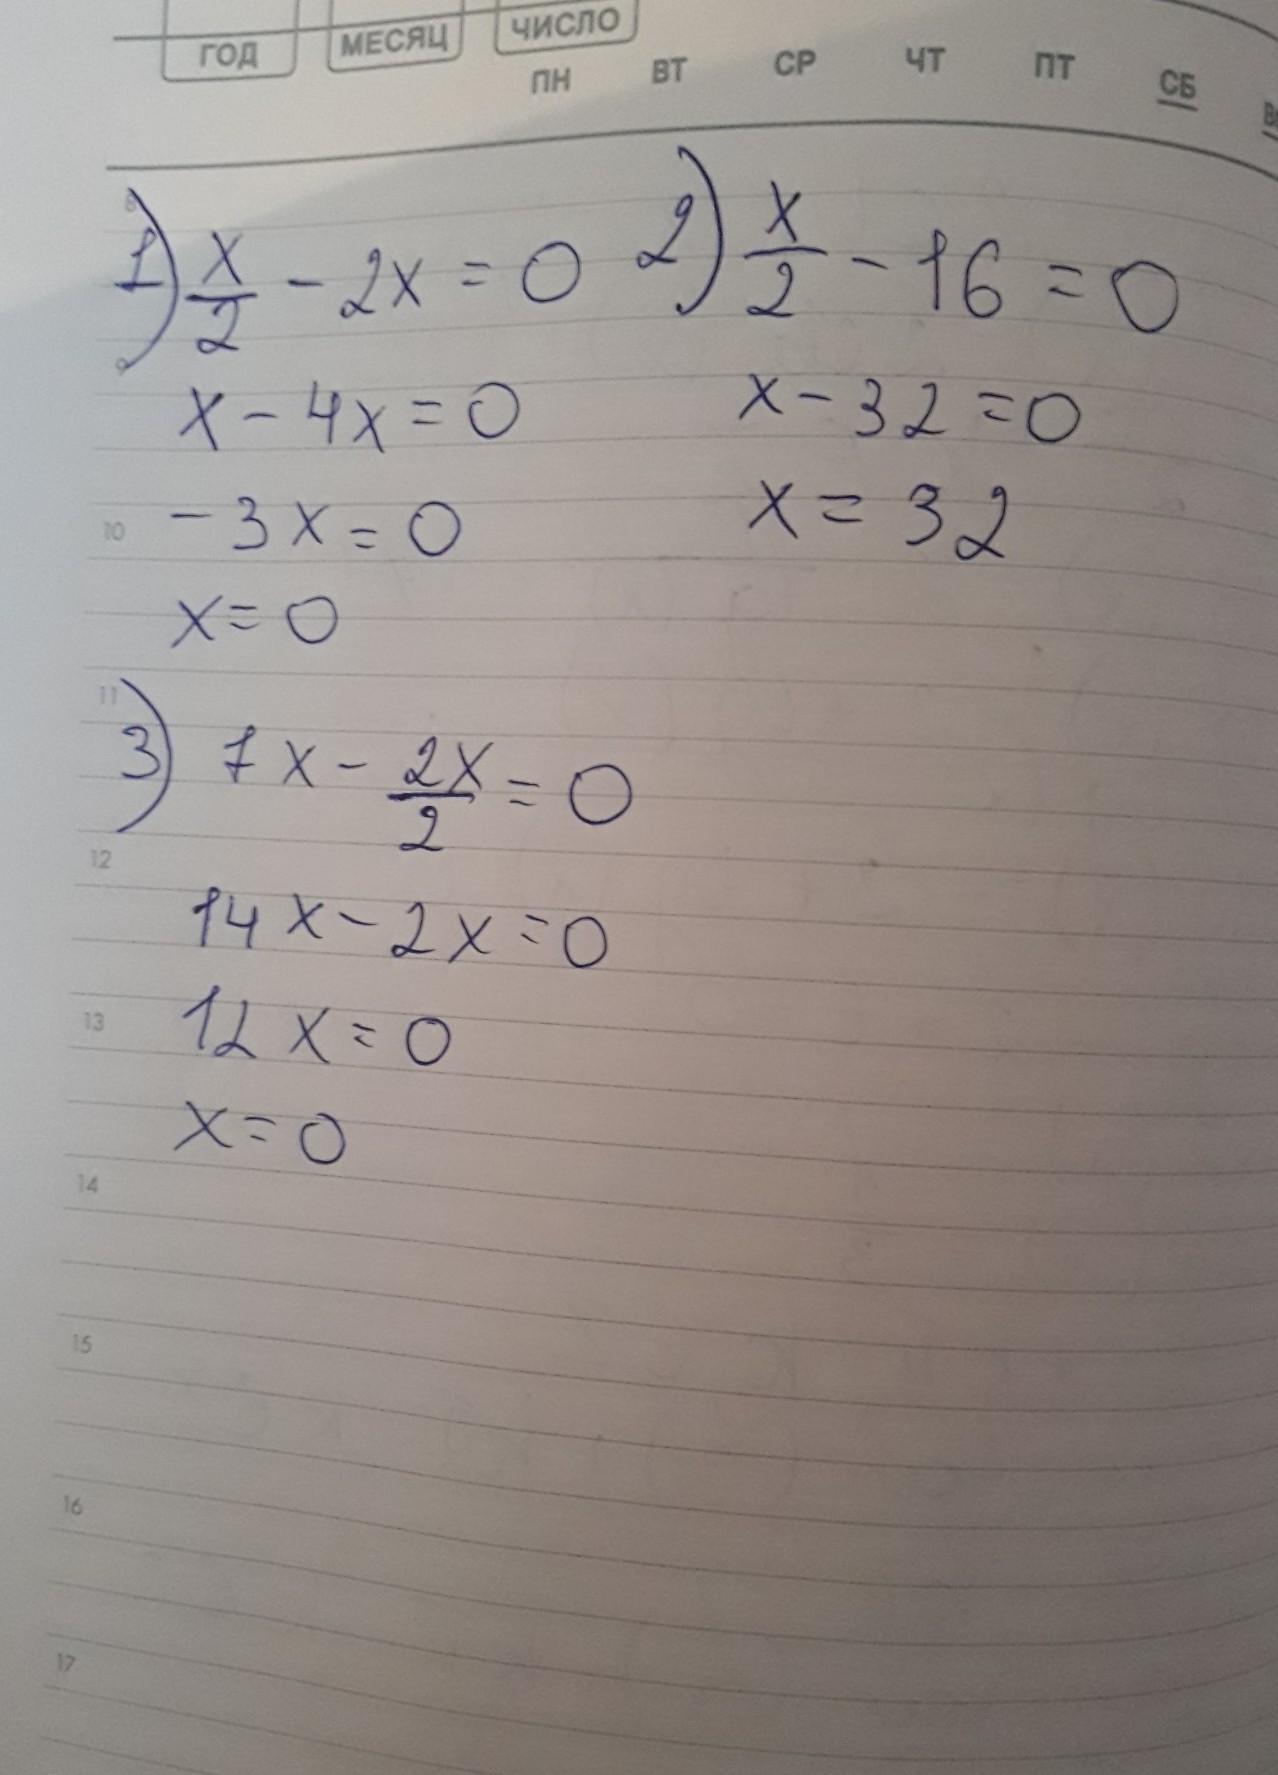 ГОД МЕСЯЦ ЧИСЛО
ПН ВТ СР ЧТ ПТ СБ
8
1) x/2 - 2x = 0
x - 4x = 0
10
-3x = 0
x = 0
2) x/2 - 16 = 0
x - 32 = 0
x = 32
11
3) 7x - 2x/2 = 0
12
14x - 2x = 0
13
12x = 0
x = 0
14
15
16
17